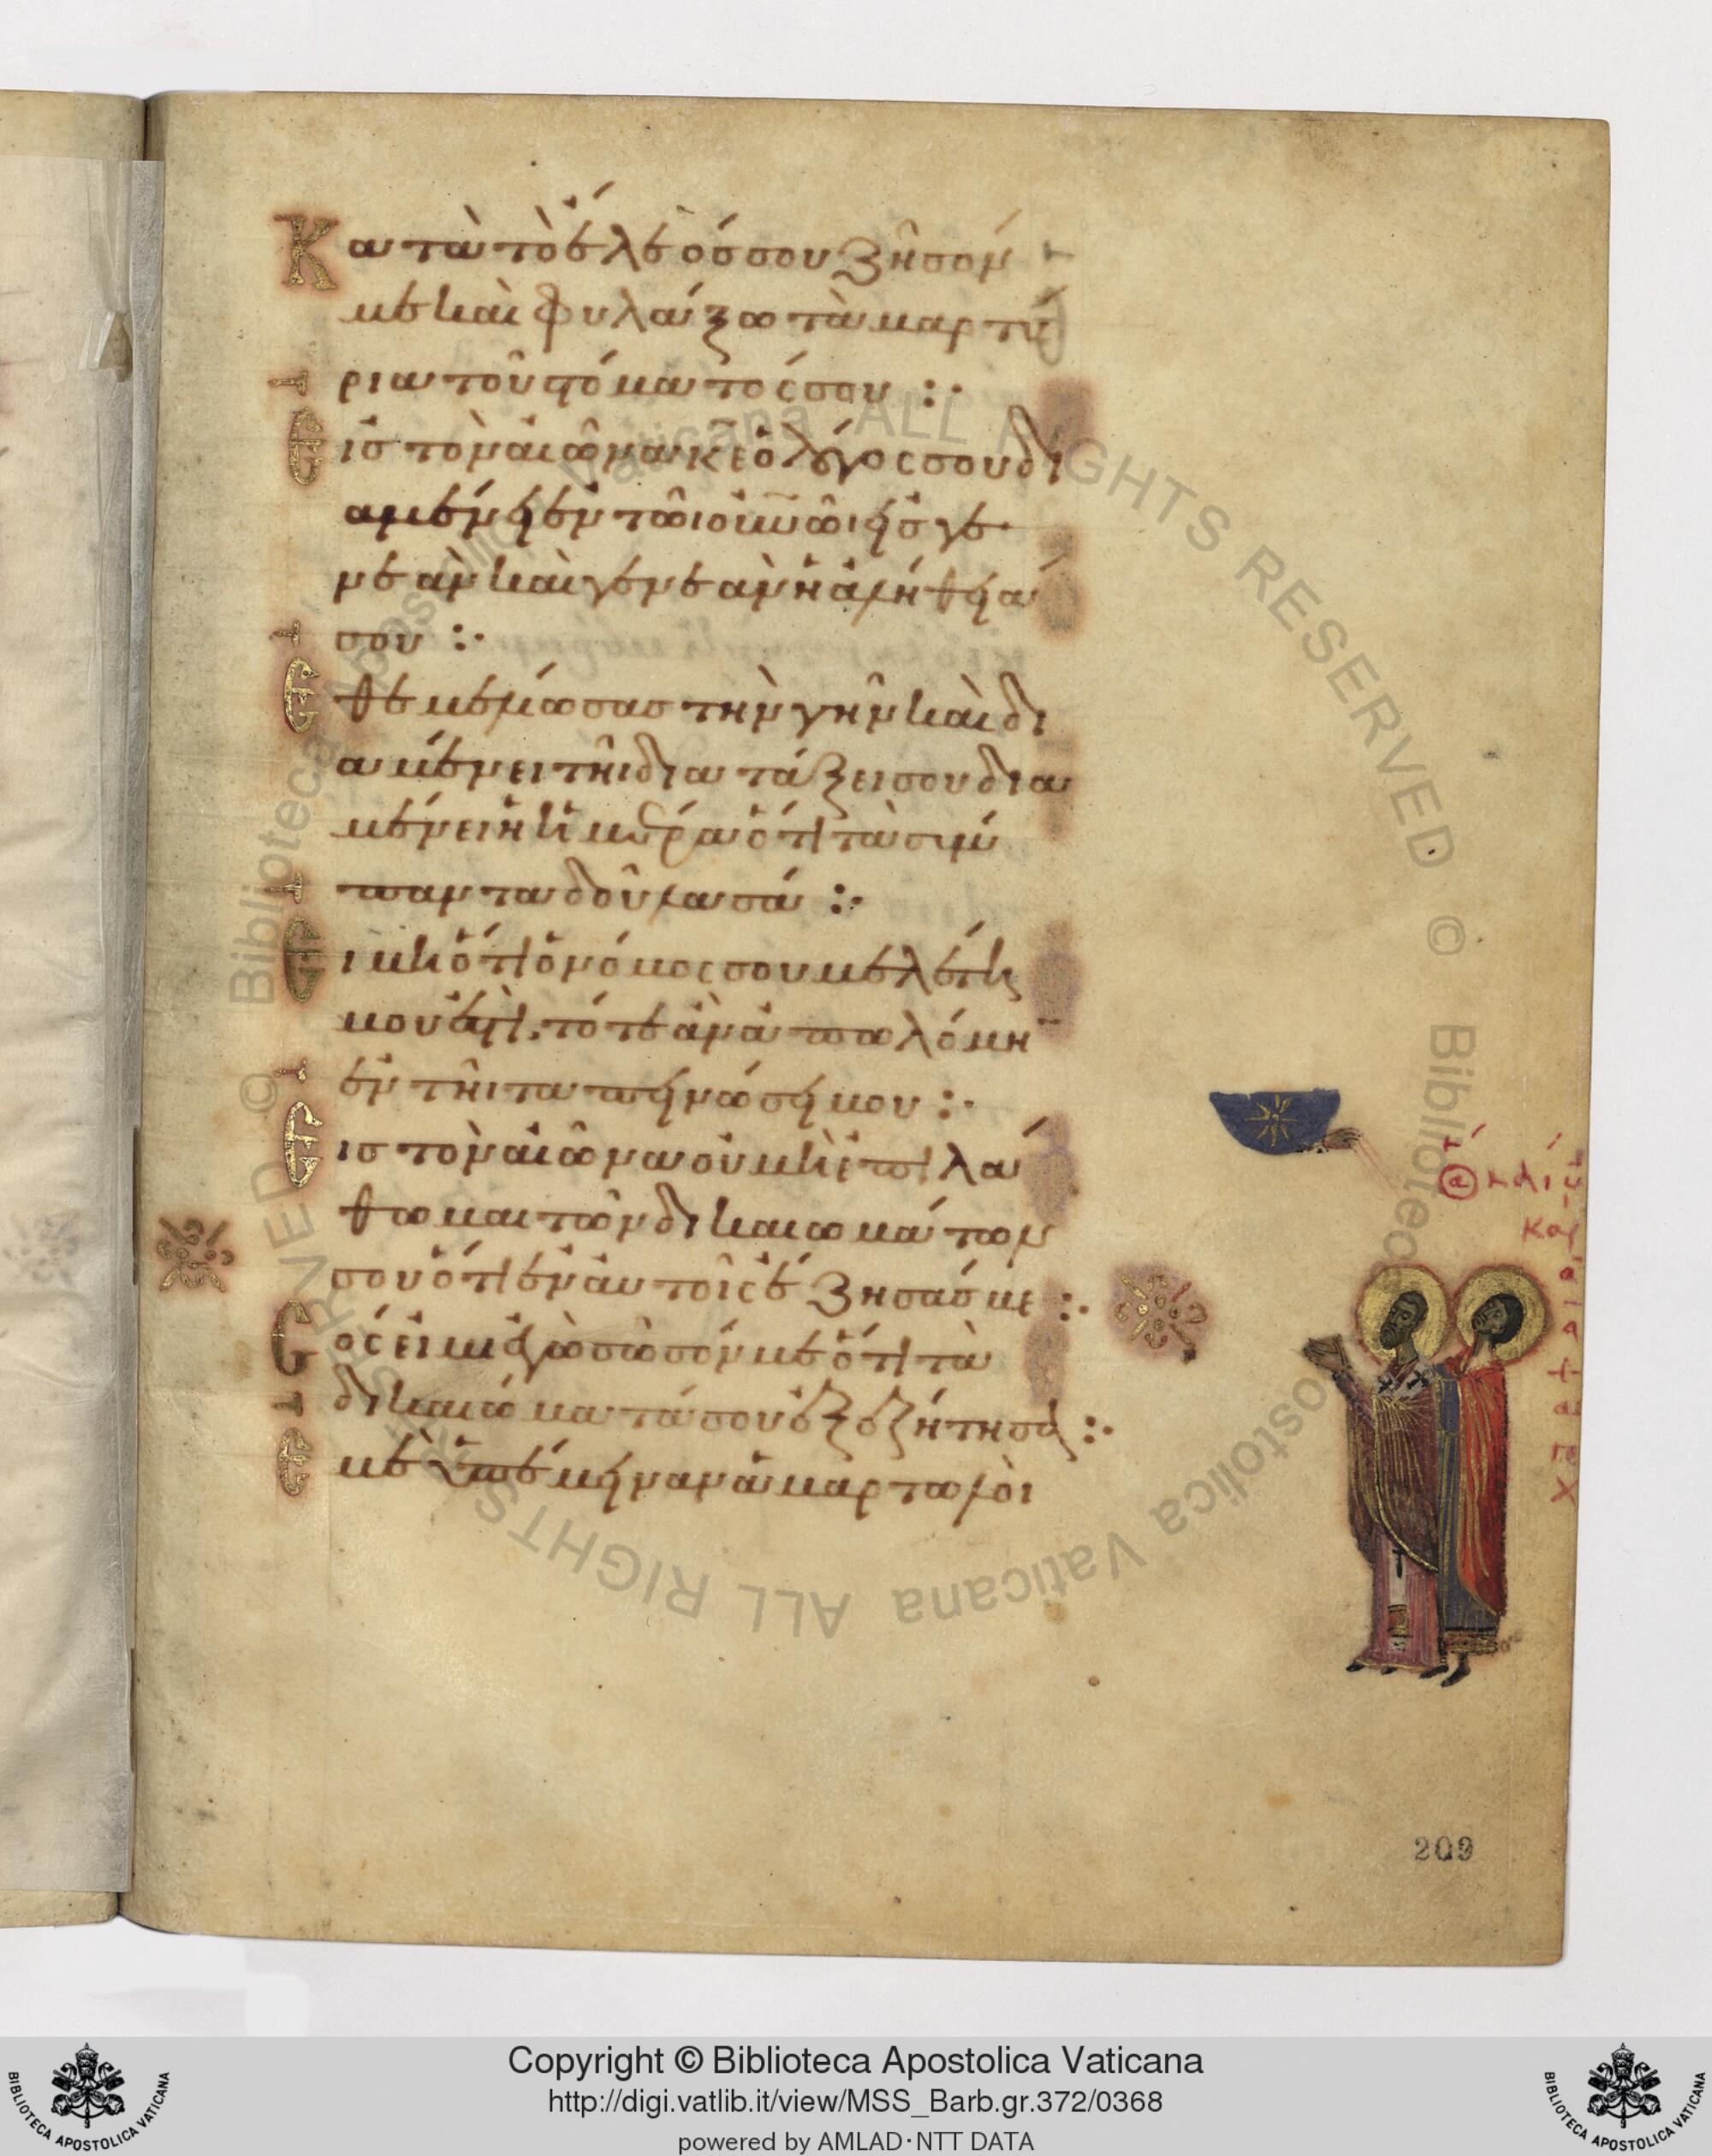 Κατὰ τὸ ἔλεός σου ζῆσόν
με καὶ φυλάξω τὰ μαρτύ
ρια τοῦ στόματός σου :·
Εἰς τὸν αἰῶνα κε ὁ λόγος σου δι
αμένει ἐν τῶι οὐνῶι εἰς γε
νεὰν καὶ γενεὰν ἡ ἀλήθειά
σου :·
Ἐθεμελίωσας τὴν γῆν καὶ δι
αμένει τῆι διατάξει σου δια
μένει ἡ ἡμέρα ὅτι τὰ σύμ
παντα δοῦλα σά :·
Εἰ μὴ ὅτι ὁ νόμος σου μελέτη
μου ἐστὶ, τότε ἂν ἀπωλόμην
ἐν τῆι ταπεινώσει μου :·
Εἰς τὸν αἰῶνα οὐ μὴ ἐπιλά
θωμαι τῶν δικαιωμάτων
σου ὅτι ἐν αὐτοῖς ἔζησάς με :·
Σός εἰμι ἐγὼ σῶσόν με ὅτι τὰ
δικαιώματά σου ἐξεζήτησα :·
Ἐμὲ ὑπέμειναν ἁμαρτωλοὶ
209
© Biblioteca Apostolica Vaticana ALL RIGHTS RESERVED © Biblioteca Apostolica Vaticana ALL RIGHTS RESERVED
Copyright © Biblioteca Apostolica Vaticana
http://digi.vatlib.it/view/MSS_Barb.gr.372/0368
powered by AMLAD·NTT DATA
BIBLIOTECA APOSTOLICA VATICANA
BIBLIOTECA APOSTOLICA VATICANA